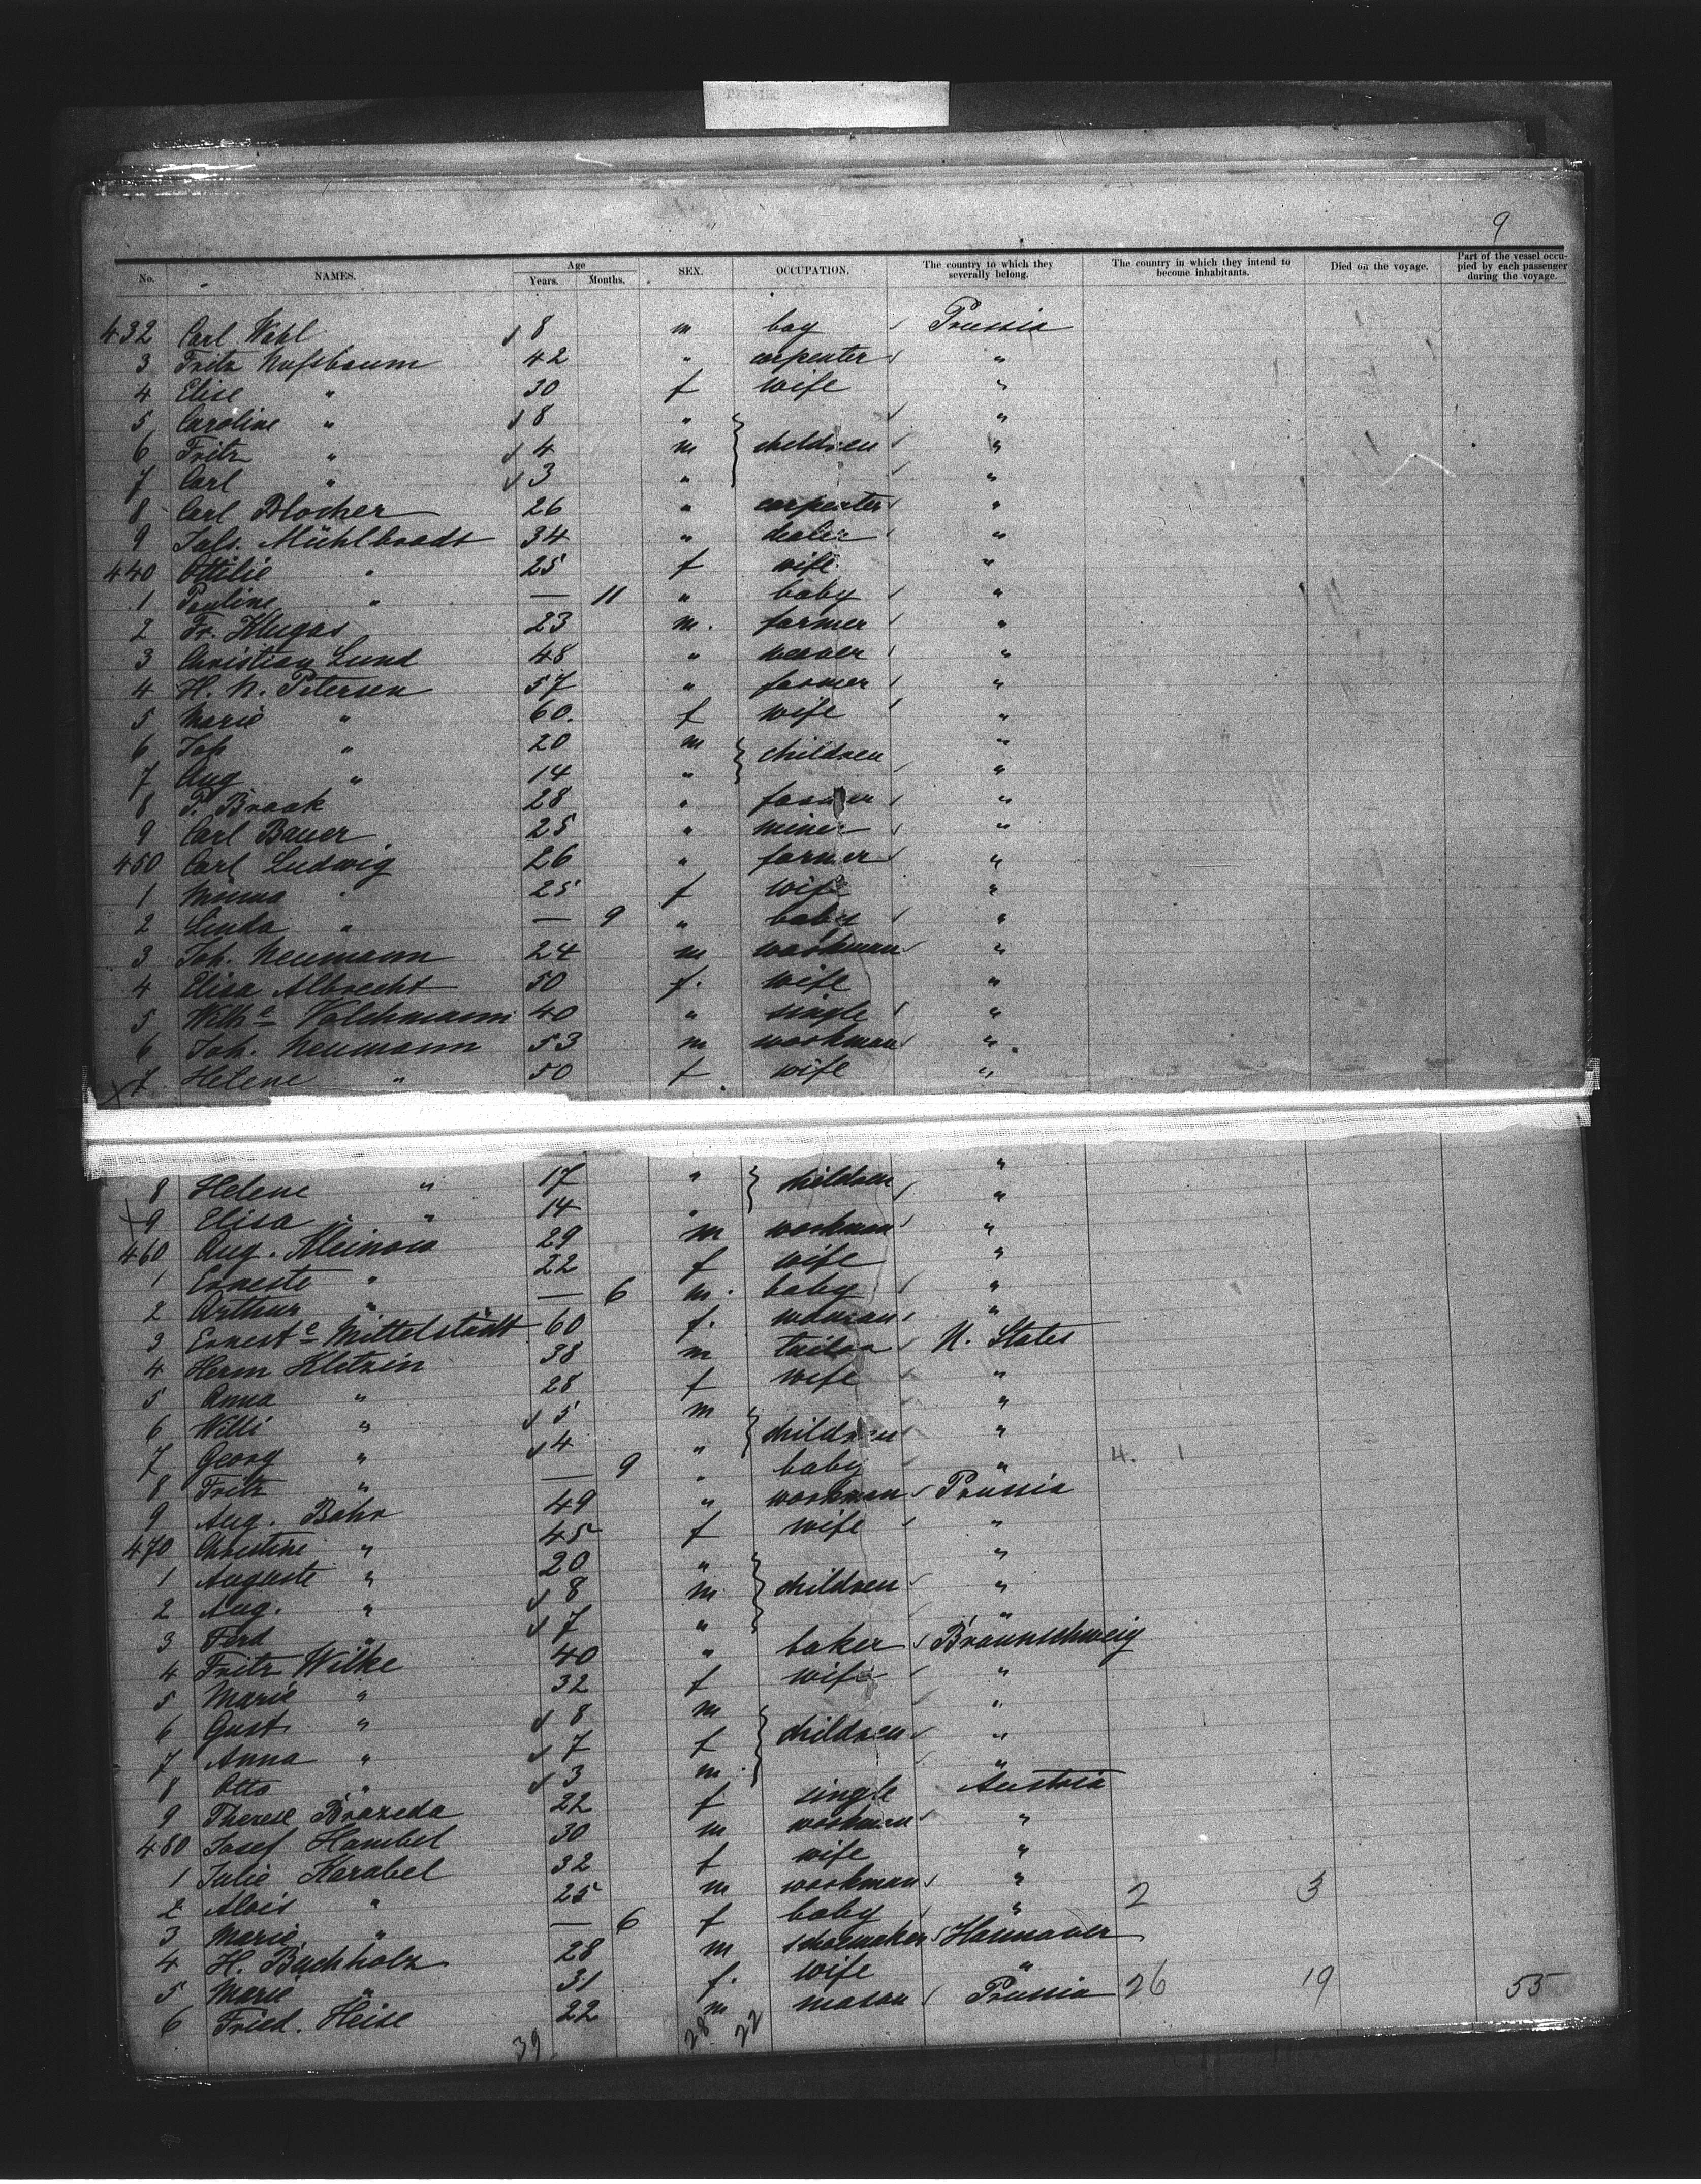 9
No. NAMES. Age Years. Months. SEX. OCCUPATION. The country to which they severally belong. The country in which they intend to become inhabitants. Died on the voyage. Part of the vessel occupied by each passenger during the voyage.
432 Carl Wahl 8 m boy Prussia
3 Fritz Nußbaum 42 " carpenter "
4 Elise " 30 f wife "
5 Caroline " 8 " "
6 Fritz " 4 m children "
7 Carl " 3 " "
8 Carl Blocher 26 " carpenter "
9 Juls. Mühlbradt 34 " dealer "
440 Ottilie " 25 f wife "
1 Pauline " — 11 " baby "
2 Fr. Klugas 23 m. farmer "
3 Christian Lund 48 " weaver "
4 H. N. Petersen 57 " farmer "
5 Marie " 60. f wife "
6 Joh " 20 m children "
7 Aug " 14 " "
8 P. Braak 28 " farmer "
9 Carl Bauer 25 " miner "
450 Carl Ludwig 26 " farmer "
1 Minna " 25 f wife "
2 Linda " — 9 " baby "
3 Joh. Neumann 24 m workman "
4 Elisa Albrecht 50 f. wife "
5 Withe Volchmann 40 " single "
6 Joh. Neumann 53 m workman "
7 Helene " 50 f wife "
8 Helene " 17 " children "
9 Elisa " 14 " "
460 Aug. Kleinow 29 m workman "
1 Erneste " 22 f wife "
2 Arthur " — 6 m. baby "
3 Ernest e Mittelstädt 60 f. woman "
4 Herm Kletzin 38 m tailor U. States
5 Anna " 28 f wife "
6 Willi " 5 m "
7 Georg " 4 " children "
8 Fritz " — 9 " baby " 4. 1
9 Aug. Bahr 49 " workman Prussia
470 Christine " 45 f wife "
1 Auguste " 20 " "
2 Aug. " 8 m children "
3 Ferd " 7 " "
4 Fritz Wilke 40 " baker Braunschweig
5 Marie " 32 f wife "
6 Gust " 8 m "
7 Anna " 7 f children "
8 Otto " 3 m "
9 Therese Brazeda 22 f single Austria
480 Josef Hambel 30 m workman "
1 Julie Karabel 32 f wife "
2 Alois " 25 m workman " 2 3
3 Marie " — 6 f baby "
4 H. Buchholz 28 m shoemaker Hannover
5 Marie " 31 f. wife "
6 Fried. Heise 22 m mason Prussia 26 19 55
39 28 22